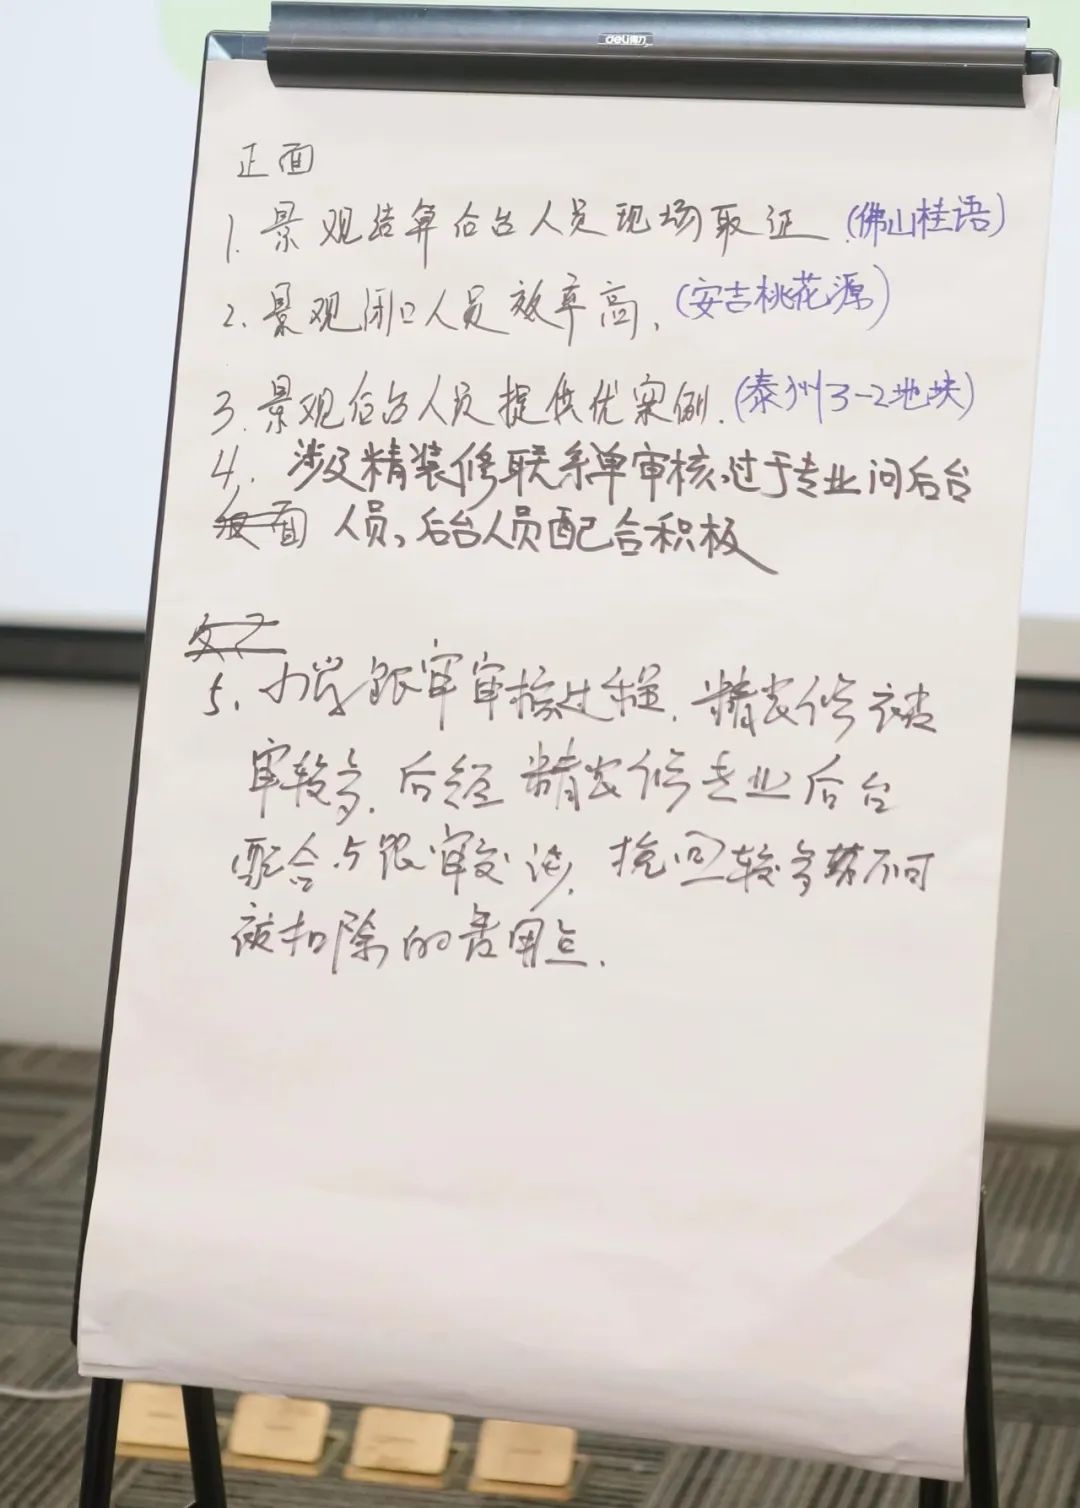 deli得力
正面
1. 景观结算后台人员现场取证.(佛山桂语)
2. 景观闭口人员效率高.(安吉桃花源)
3. 景观后台人员提供优案例.(泰州3-2地块)
4. 涉及精装修联系单审核,过于专业问后台
面 人员,后台人员配合积极
5. 跟审审核过程.精装修被
审较多.后经精装修专业后台
配合与跟审交涉,挽回较多不可
被扣除的费用点.